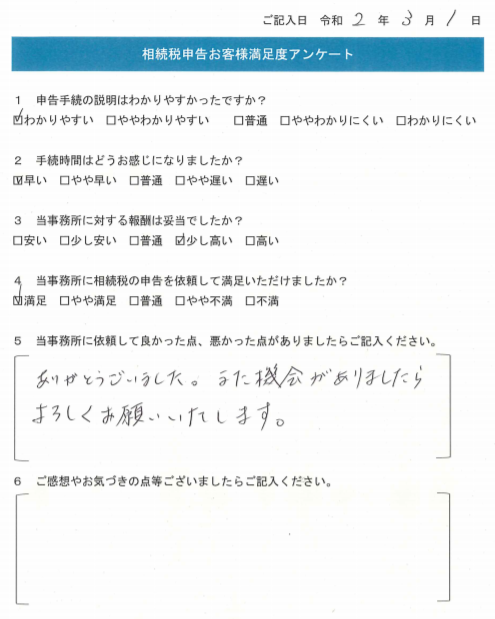 ご記入日 令和 2 年 3 月 1 日
相続税申告お客様満足度アンケート
1 申告手続の説明はわかりやすかったですか？
☑わかりやすい □ややわかりやすい □普通 □ややわかりにくい □わかりにくい
2 手続時間はどうお感じになりましたか？
☑早い □やや早い □普通 □やや遅い □遅い
3 当事務所に対する報酬は妥当でしたか？
□安い □少し安い □普通 ☑少し高い □高い
4 当事務所に相続税の申告を依頼して満足いただけましたか？
☑満足 □やや満足 □普通 □やや不満 □不満
5 当事務所に依頼して良かった点、悪かった点がありましたらご記入ください。
ありがとうございました。また機会がありましたら
よろしくお願いいたします。
6 ご感想やお気づきの点等ございましたらご記入ください。